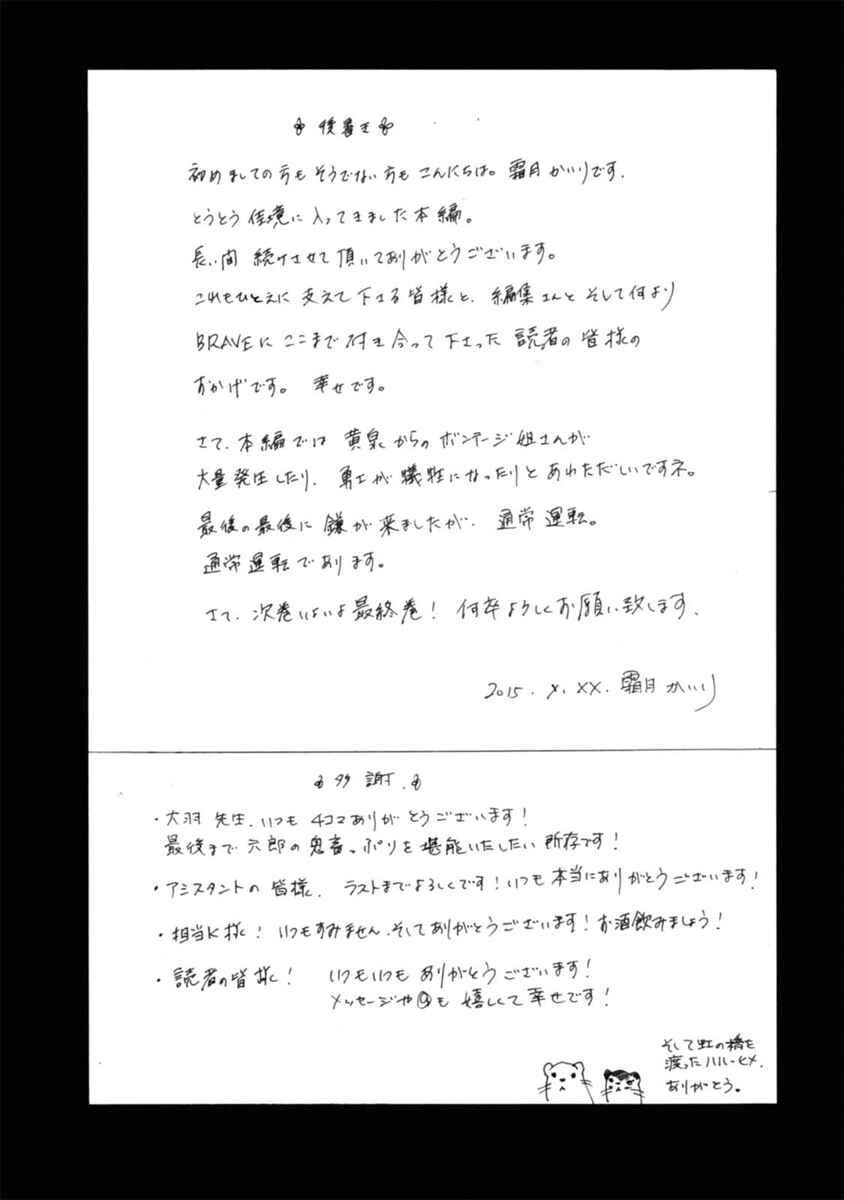 後書き
初めましての方もそうでない方もこんにちは。霜月かいりです.
とうとう佳境に入ってきました本編。
長い間 続けさせて頂いてありがとうございます。
これもひとえに 支えて下さる皆様と、編集さんと そして何より
BRAVEに ここまで付き合って下さった 読者の皆様の
おかげです。 幸せです。
さて、本編では 黄泉からのボンテージ姐さんが
大量発生したり、勇士が犠牲になったりと あわただしいですネ。
最後の最後に 鎌が来ましたが、通常運転。
通常運転であります。
さて、次巻いよいよ最終巻! 何卒よろしくお願い致します.
2015. X. XX. 霜月かいり
謝.
・大羽先生、いつも 4コマありがとうございます!
最後まで 六郎の鬼畜っぷりを 堪能いたしたい所存です!
・アシスタントの皆様、 ラストまでよろしくです! いつも本当にありがとうございます!
・担当K様! いつもすみません、そしてありがとうございます! お酒飲みましょう!
・読者の皆様! いつもいつも ありがとうございます!
メッセージや も 嬉しくて幸せです!
そして虹の橋を
渡ったハル-ヒメ、
ありがとう。